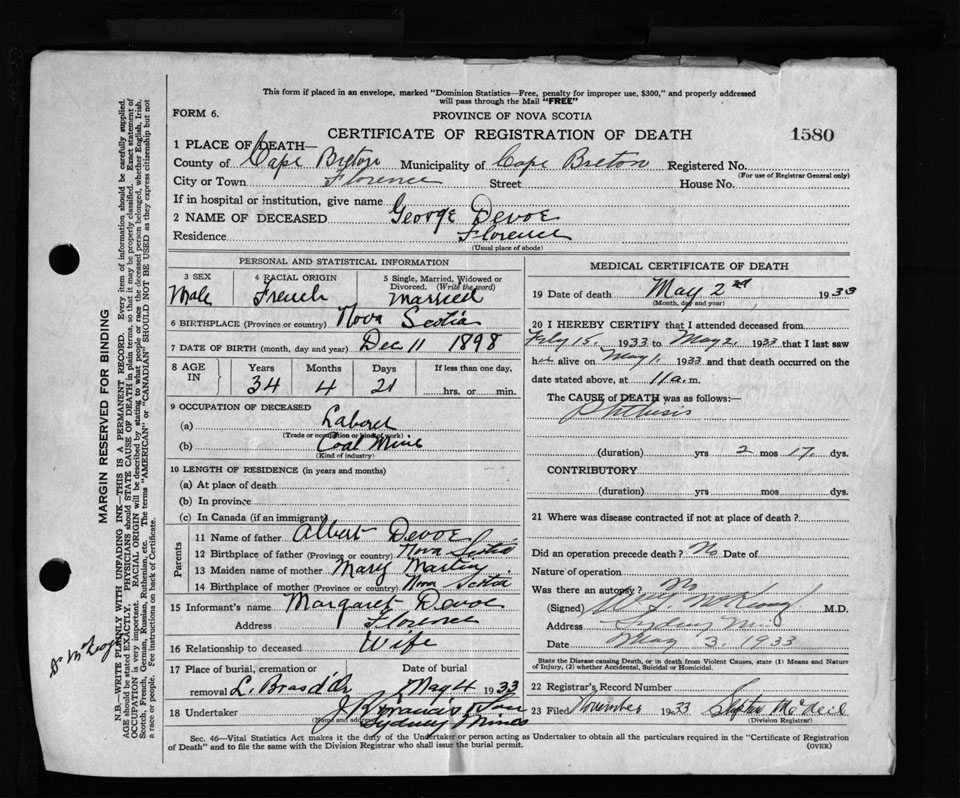 This form if placed in an envelope, marked "Dominion Statistics—Free, penalty for improper use, $300," and properly addressed
will pass through the Mail "FREE"
FORM 6.
PROVINCE OF NOVA SCOTIA
CERTIFICATE OF REGISTRATION OF DEATH
1580
1 PLACE OF DEATH—
County of Cape Breton Municipality of Cape Breton Registered No.
(For use of Registrar General only)
City or Town Florence Street House No.
If in hospital or institution, give name
2 NAME OF DECEASED George Devoe
Residence Florence
(Usual place of abode)
PERSONAL AND STATISTICAL INFORMATION
3 SEX
Male
4 RACIAL ORIGIN
French
5 Single, Married, Widowed or
Divorced. (Write the word)
Married
6 BIRTHPLACE (Province or country) Nova Scotia
7 DATE OF BIRTH (month, day and year) Dec 11 1898
8 AGE
IN
Years
34
Months
4
Days
21
If less than one day,
hrs. or min.
9 OCCUPATION OF DECEASED
(a) Laborer
(Trade or occupation or kind of work)
(b) Coal Mine
(Kind of industry)
10 LENGTH OF RESIDENCE (in years and months)
(a) At place of death
(b) In province
(c) In Canada (if an immigrant)
Parents
11 Name of father Albert Devoe
12 Birthplace of father (Province or country) Nova Scotia
13 Maiden name of mother Mary Martin
14 Birthplace of mother (Province or country) Nova Scotia
15 Informant's name Margaret Devoe
Address Florence
16 Relationship to deceased Wife
17 Place of burial, cremation or
removal L. Bras d'Or
Date of burial
May 4 1933
18 Undertaker J. Francis & Son
(Name and address)
Sydney Mines
MEDICAL CERTIFICATE OF DEATH
19 Date of death May 2nd, 1933
(Month, day and year)
20 I HEREBY CERTIFY that I attended deceased from
Feby 15. 1933 to May 2. 1933 that I last saw
h alive on May 1. 1933 and that death occurred on the
date stated above, at 11 a. m.
The CAUSE of DEATH was as follows:—
Phthisis
(duration) yrs 2 mos 17 dys.
CONTRIBUTORY
(duration) yrs. mos. dys.
21 Where was disease contracted if not at place of death?
Did an operation precede death? No Date of
Nature of operation
Was there an autopsy? No
(Signed) M.D.
Address Sydney Mines
Date May 3, 1933
State the Disease causing Death, or in death from Violent Causes, state (1) Means and Nature
of Injury, (2) whether Accidental, Suicidal or Homicidal.
22 Registrar's Record Number
23 Filed November 1933 Stephen McNeil
(Division Registrar)
Sec. 46—Vital Statistics Act makes it the duty of the Undertaker or person acting as Undertaker to obtain all the particulars required in the "Certificate of Registration
of Death" and to file the same with the Division Registrar who shall issue the burial permit. (OVER)
MARGIN RESERVED FOR BINDING
N.B.—WRITE PLAINLY WITH UNFADING INK—THIS IS A PERMANENT RECORD. Every item of information should be carefully supplied.
AGE should be stated EXACTLY. PHYSICIANS should STATE CAUSE OF DEATH in plain terms, so that it may be properly classified. Exact statement of
OCCUPATION is very important. RACIAL ORIGIN will be described by stating to what people or race the deceased person belonged, whether English, Irish,
Scotch, French, German, Russian, Ruthenian, etc. The terms "AMERICAN" or "CANADIAN" SHOULD NOT BE USED as they express citizenship but not
a race or people. See instructions on back of Certificate.
Dr McLeod